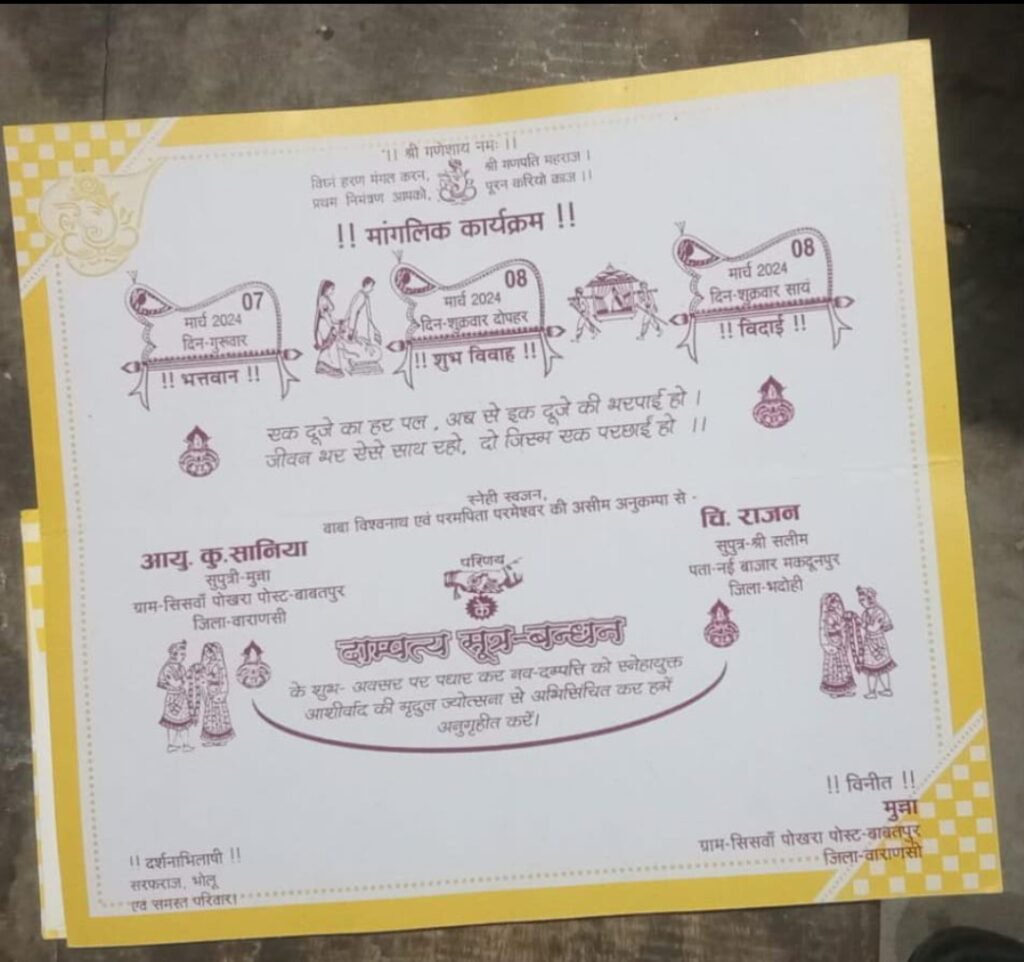 ।। श्री गणेशाय नमः ।।
विघ्नं हरण मंगल करन, श्री गणपति महराज ।
प्रथम निमंत्रण आपको, पूरन करियो काज ।।
!! मांगलिक कार्यक्रम !!
07
मार्च 2024
दिन-गुरूवार
!! भत्तवान !!
08
मार्च 2024
दिन-शुक्रवार दोपहर
!! शुभ विवाह !!
08
मार्च 2024
दिन-शुक्रवार सायं
!! विदाई !!
एक दूजे का हर पल , अब से इक दूजे की भरपाई हो ।
जीवन भर ऐसे साथ रहो, दो जिस्म एक परछाई हो ।।
स्नेही स्वजन,
बाबा विश्वनाथ एवं परमपिता परमेश्वर की असीम अनुकम्पा से -
आयु. कु.सानिया
सुपुत्री-मुन्ना
ग्राम-सिसवाँ पोखरा पोस्ट-बाबतपुर
जिला-वाराणसी
परिणय
के
चि. राजन
सुपुत्र-श्री सलीम
पता-नई बाजार मकदूनपुर
जिला-भदोही
दाम्पत्य सूत्र-बन्धन
के शुभ- अवसर पर पधार कर नव-दम्पत्ति को स्नेहायुक्त
आशीर्वाद की मृदुल ज्योत्सना से अभिसिंचित कर हमें
अनुगृहीत करें।
!! दर्शनाभिलाषी !!
सरफराज, भोलू
एवं समस्त परिवार।
!! विनीत !!
मुन्ना
ग्राम-सिसवाँ पोखरा पोस्ट-बाबतपुर
जिला-वाराणसी